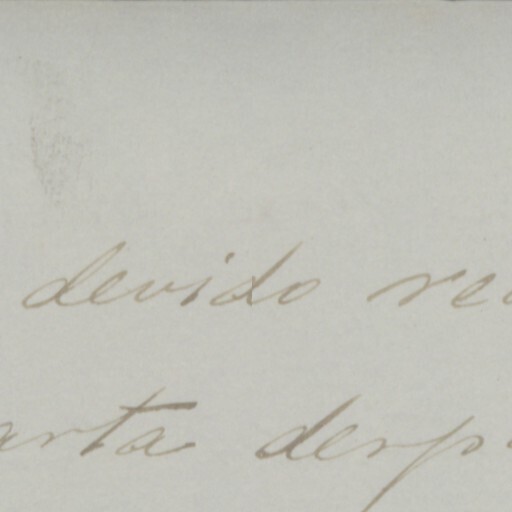 devido rec
arta desp